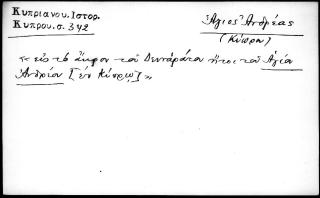 Κυπριανου. Ιστορ.
Κυπρου. σ. 342
Ἅγιος Ἀνδρέας
(Κύπρου)
« εἰς τὸ ἄκρον τοῦ Δειναράτου ἤτοι τοῦ Ἁγίου
Ἀνδρέου [ἐν Κύπρῳ] »